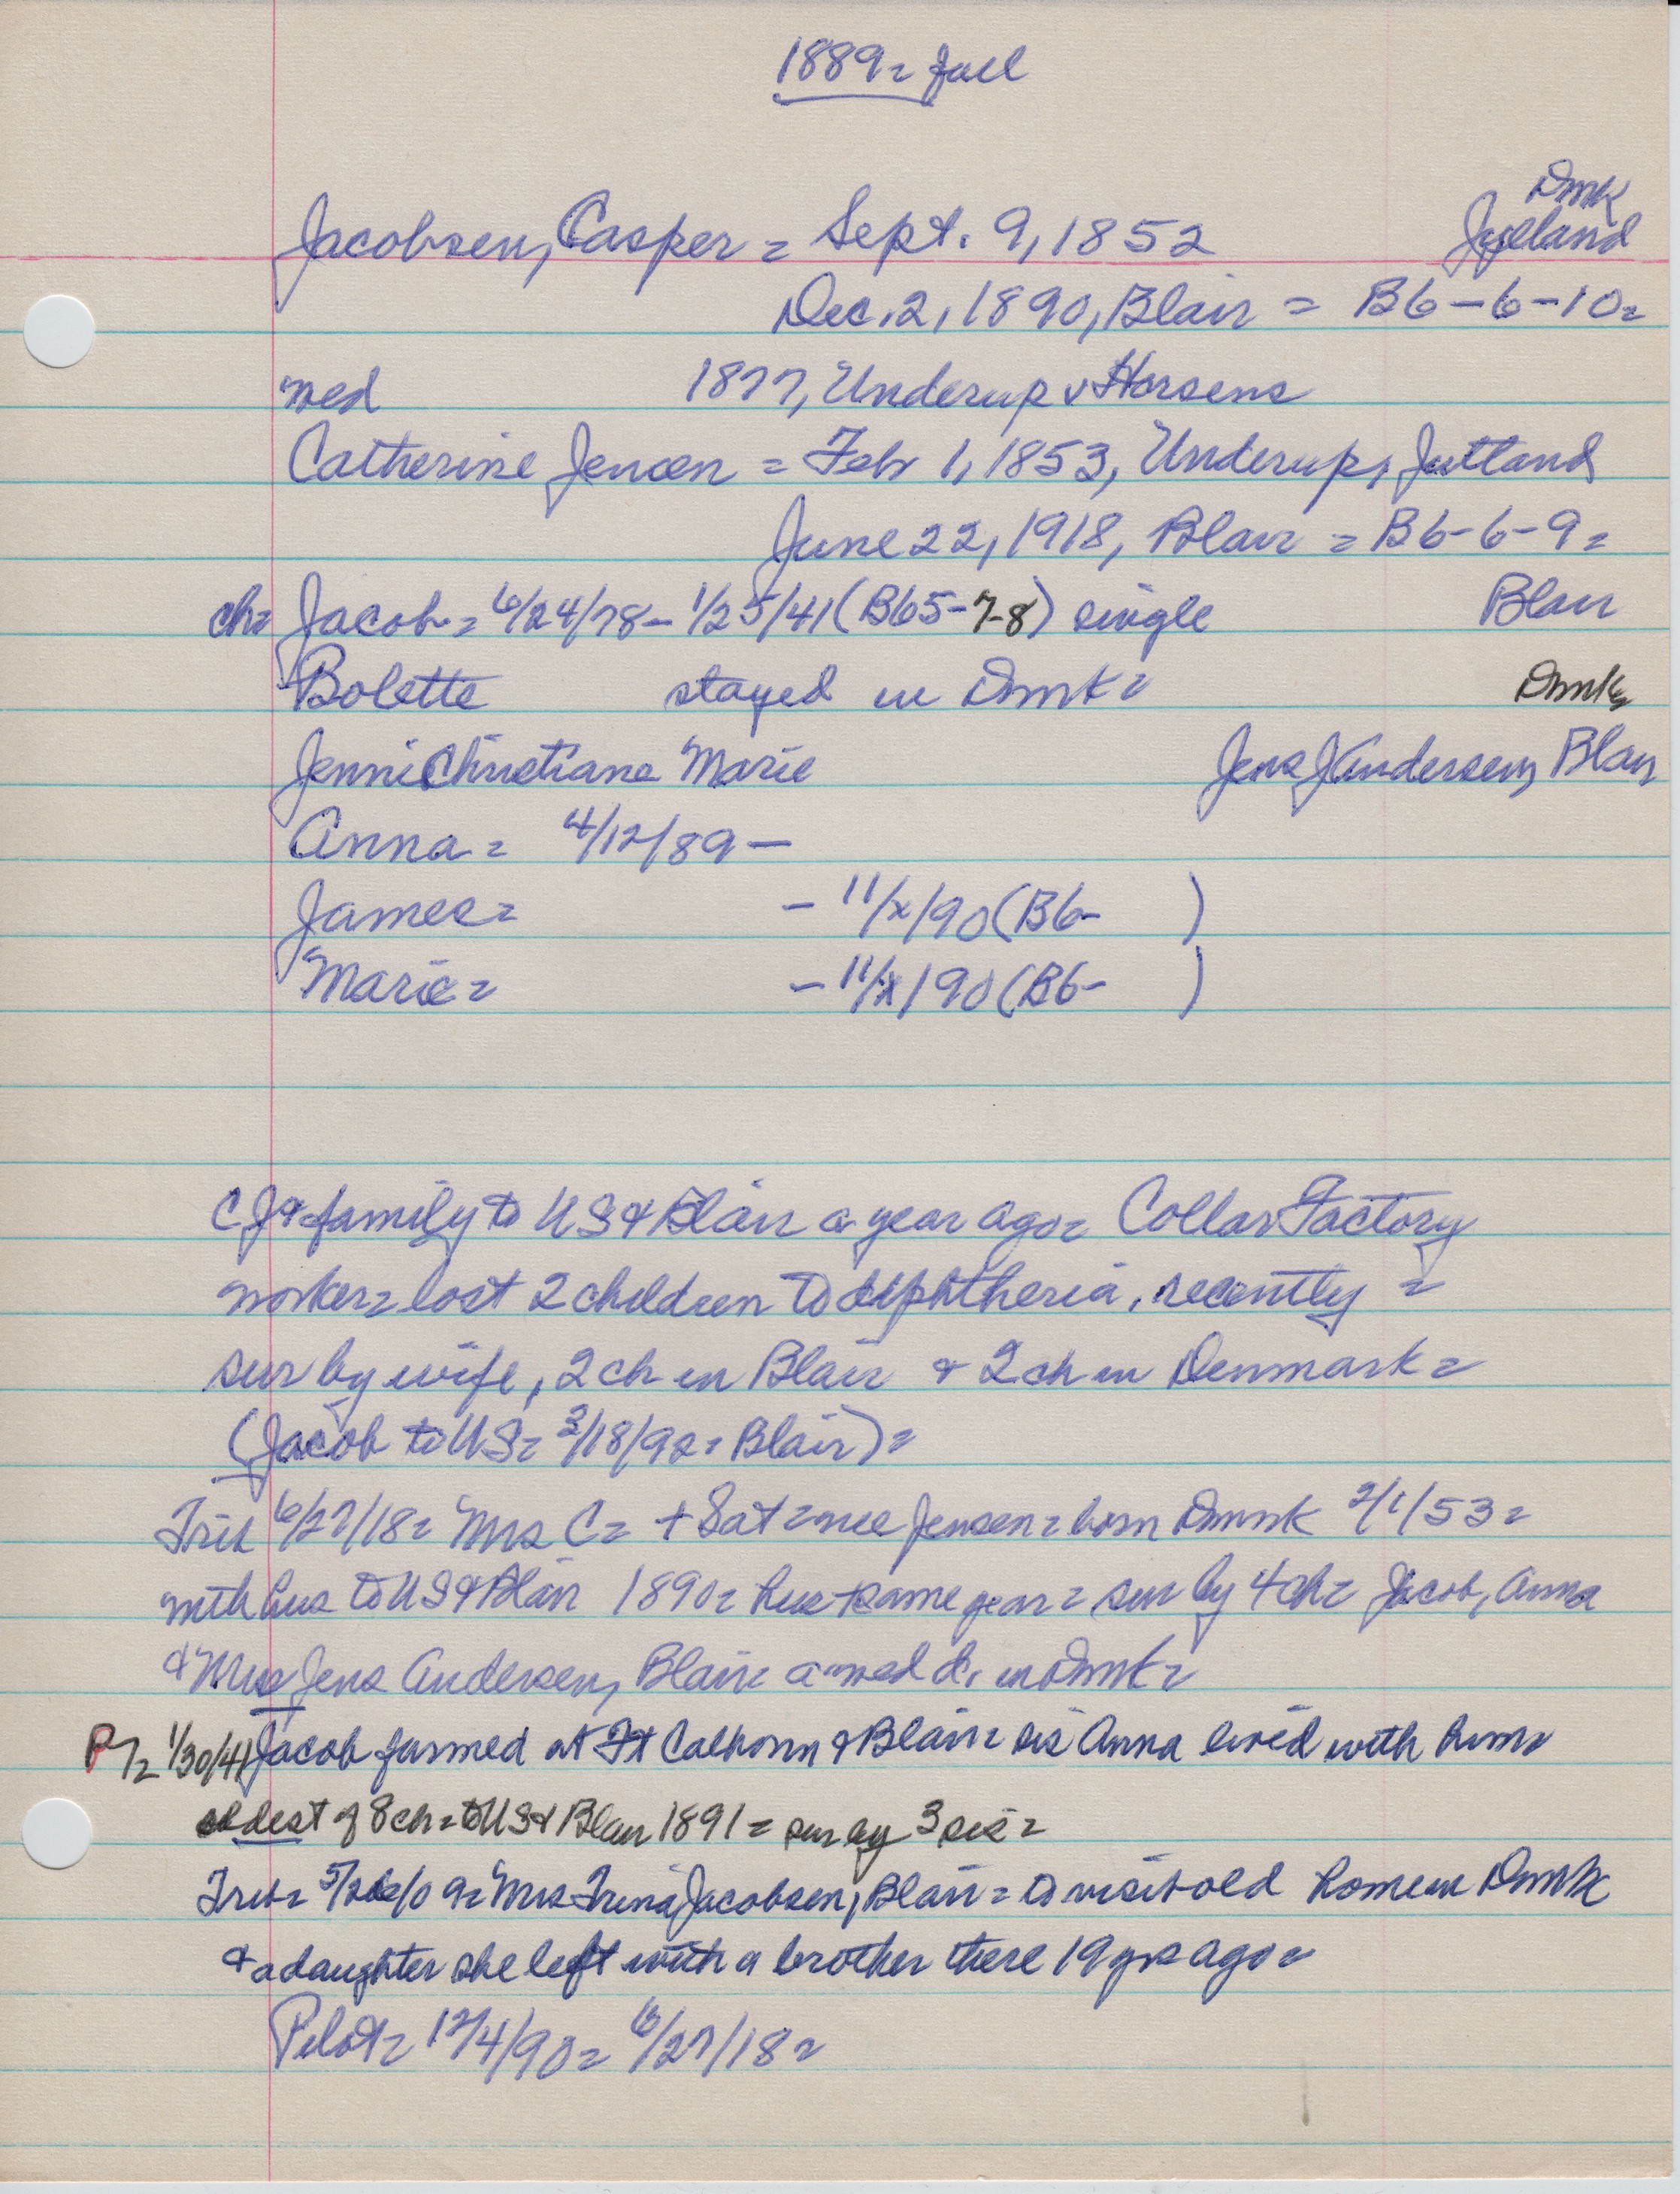 1889 = fall
Dmk
Jacobsen, Casper = Sept. 9, 1852 Jylland
Dec. 2, 1890, Blair = B6-6-10=
wed 1877, Underup v Horsens
Catherine Jensen = Feb 1, 1853, Underup, Jutland
June 22, 1918, Blair = B6-6-9=
ch= Jacob = 6/24/78 - 1/25/41 (B65-7-8) single Blair
Bolette stayed in Dmk= Dmk
Jenni Christiane Marie Jens J Andersen, Blair
Anna = 4/12/89 -
James = - 11/x/90 (B6- )
Marie = - 11/x/90 (B6- )
CJ & family to US & Blair a year ago = Collar Factory
worker = lost 2 children to diphtheria, recently =
sur by wife, 2 ch in Blair & 2 ch in Denmark =
(Jacob to US = 3/18/92 = Blair) =
Trib 6/27/18 = Mrs C = + Sat = nee Jensen = born Dmk 2/1/53 =
with hus to US & Blair 1890 = hus + same year = sur by 4 ch = Jacob, Anna
& Mrs Jens Andersen, Blair = a wed d. in Dmk =
P/= 1/30/41 Jacob farmed at Ft Calhoun & Blair = sis Anna lived with him =
oldest of 8 ch = to US & Blair 1891 = sur by 3 sis =
Trib = 5/26/09 = Mrs Trina Jacobsen, Blair = to visit old home in Dmk
& a daughter she left with a brother there 19 yrs ago =
Pilot = 12/4/90 = 6/27/18 =